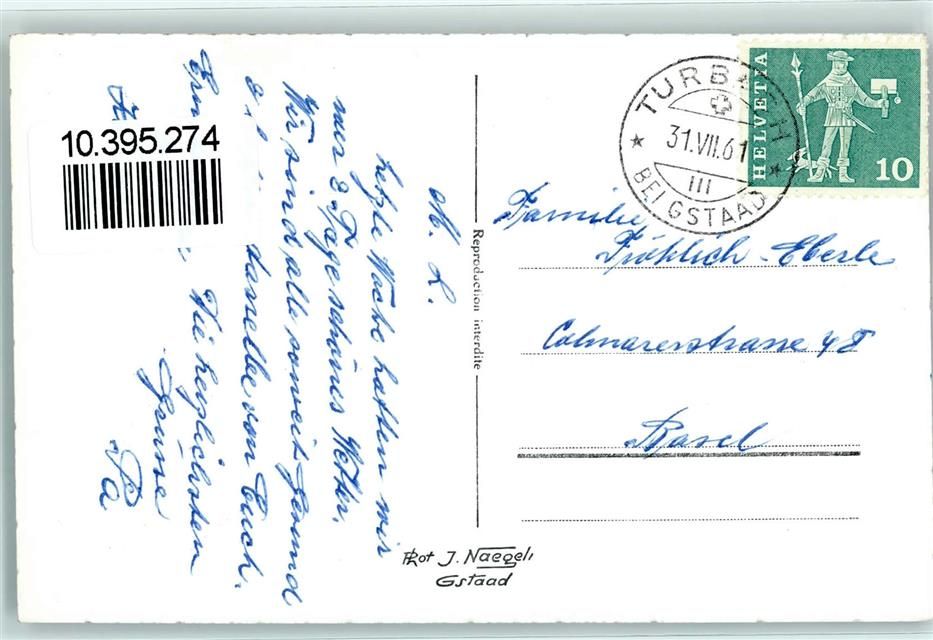 10.395.274
M. L.
Letzte Woche hatten wir
nur 2 Tage schönes Wetter.
Wir sind alle soweit gesund
dasselbe von Euch.
Die herzlichsten
Grüsse
Pa
Reproduction interdite
Phot J. Naegeli
Gstaad
TURBACH
31.VII.61
III
BEI GSTAAD
HELVETIA
10
Familie
Fröhlich-Eberle
Colmarerstrasse 48
Basel